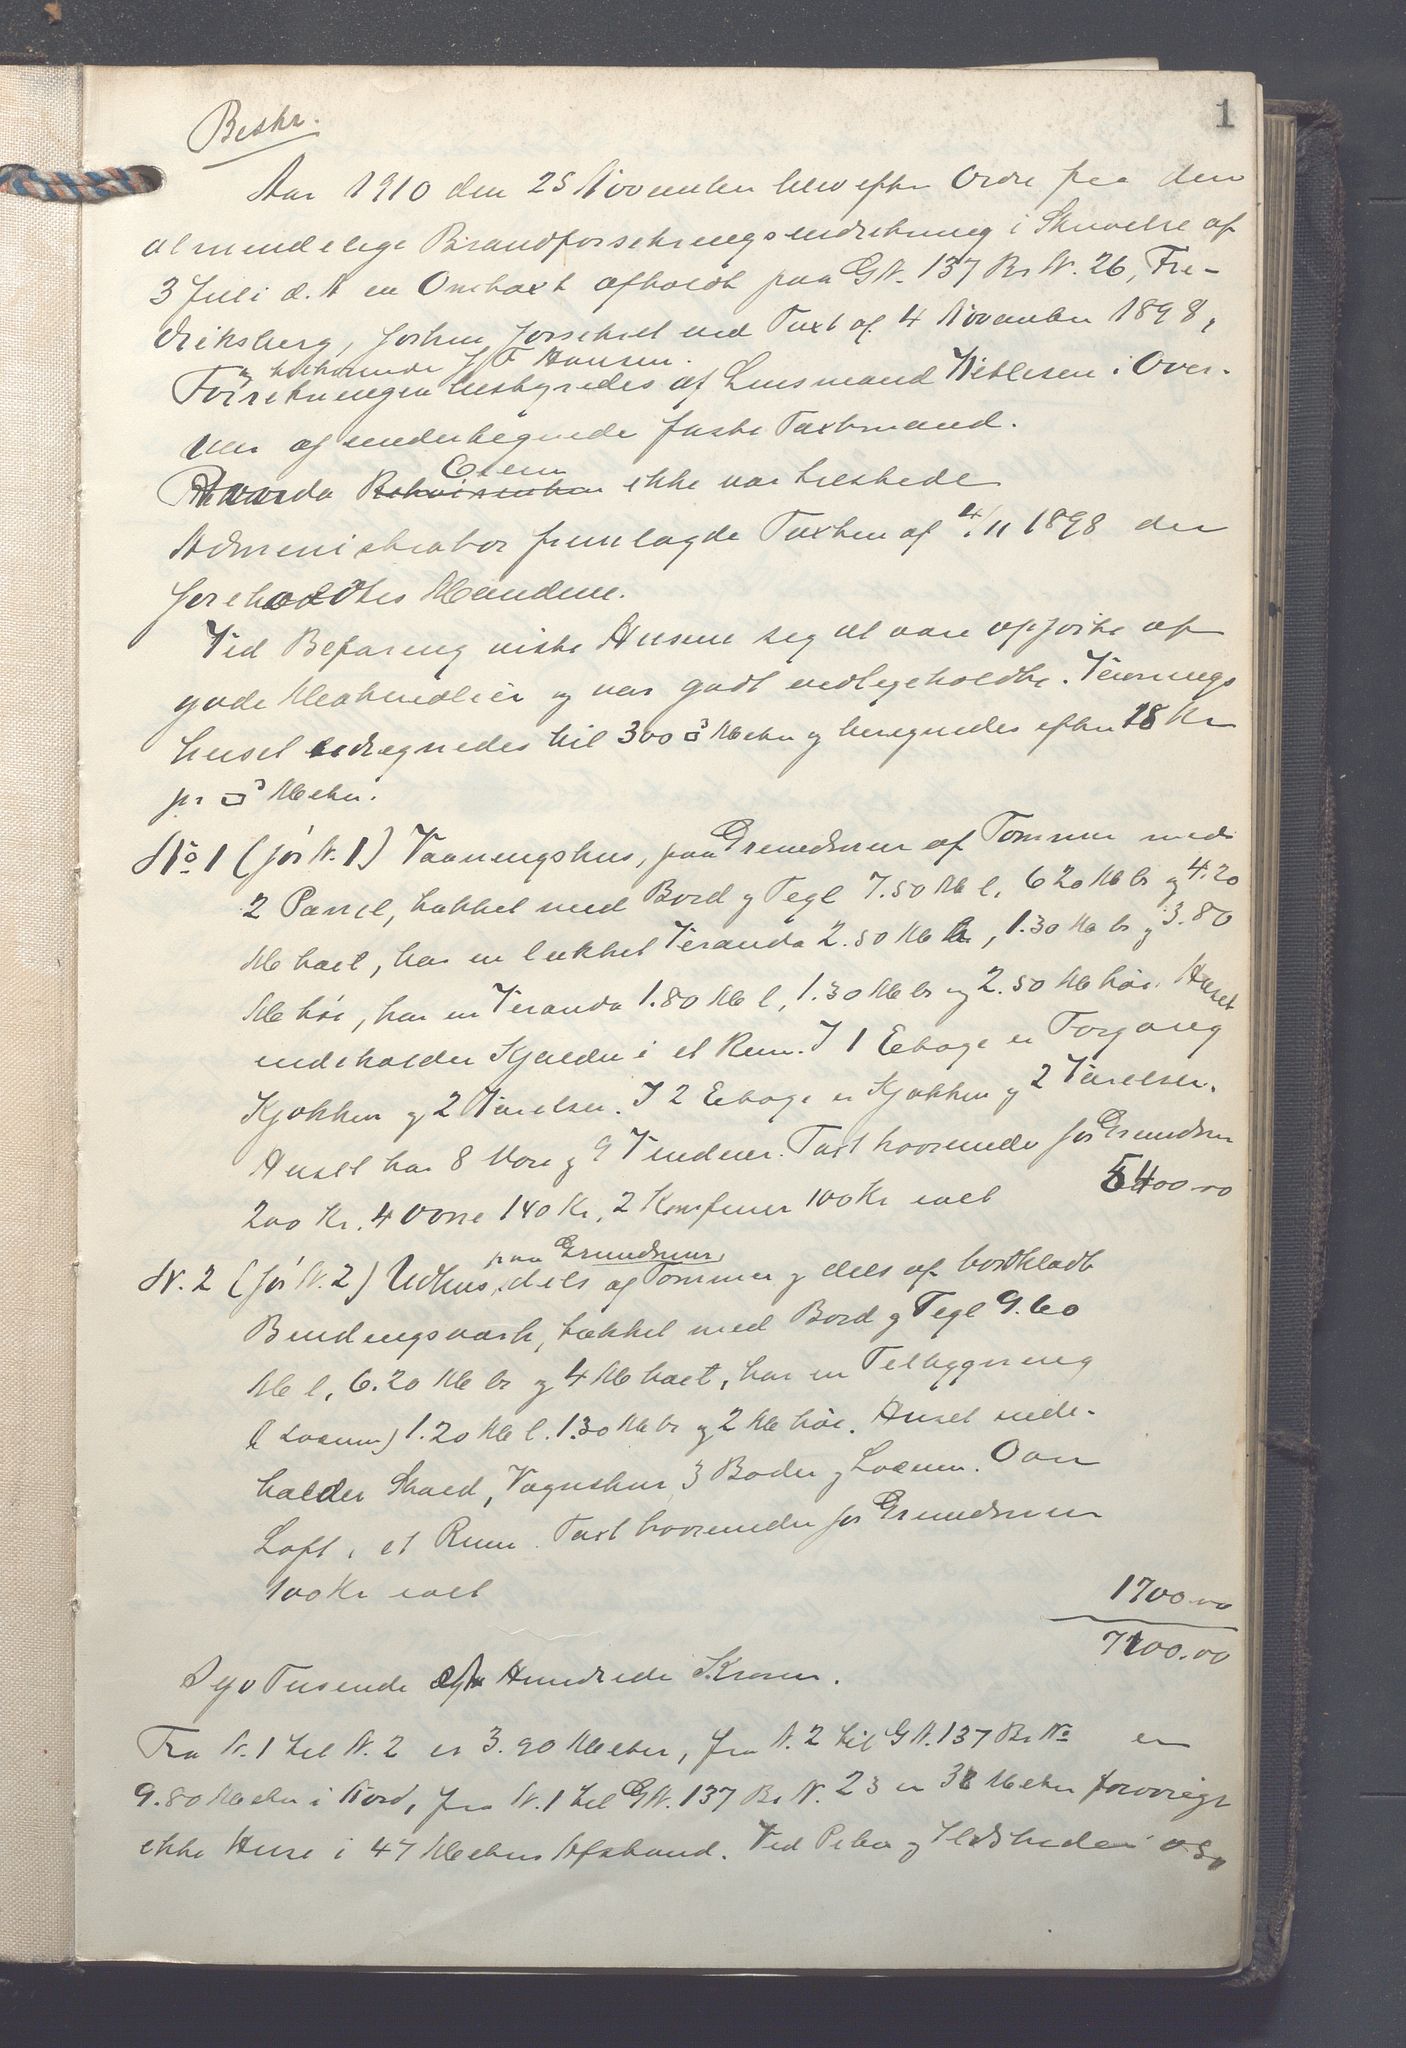 1
Beskr.
Aar 1910 den 25 November blev efter Ordre fra den
almindelige Brandforsikringsindretning i Skrivelse af
3 Juli d. A en Omtaxt afholdt paa GN. 137 Br N. 26, Fre-
driksberg, forhen forsikret ved Taxt af 4 November 1898,
tilhørende J F Hansen.
Forretningen bestyredes af Lensmand Nielsen i Over-
og undertegnede faste Taxtmænd.
da Eieren ikke var tilstede
Administrator fremlagde Taxten af 4/11 1898 der
foreholdtes Mændene.
Ved Befaring viste Husene sig at være opførte af
gode Materialier og var godt vedligeholdte. Vaanings
huset udregnedes til 300 □3 Meter og beregnedes efter 18 Kr
pr □3 Meter.
No 1 (før N. 1) Vaaningshus, paa Grundmur af Tømmer med
2 Panel, tækket med Bord og Tegl 7.50 M l. 6 20 M br og 4.20
M høit, har en lukket Veranda 2.50 M l, 1.30 M br og 3.80
M høi, har en Veranda 1.80 M l, 1.30 M br og 2.50 M høi. Huset
indeholder Kjælder i et Rum. I 1 Etage er Forgang
Kjøkken og 2 Værelser. I 2 Etage er Kjøkken og 2 Værelser.
Huset har 8 Døre og 9 Vinduer. Taxt hvorunder for Grundmur
200 Kr. 4 Ovne 140 Kr, 2 Komfurer 100 Kr ialt 5400.00
N. 2 (før N. 2) Udhus, paa Grundmur, dels af Tømmer og dels af bordklædt
Bindingsværk, tækket med Bord og Tegl 9.60
M l, 6.20 M br og 4 M høit, har en Tilbygning
(Locum) 1.20 M l. 1.30 M br og 2 M høi. Huset inde-
holder Skaal, Vognskur 3 Boder og Locum. Oven
Loft i et Rum. Taxt hvorunder for Grundmur
100 Kr ialt 1700.00
7100.00
Syv Tusende Hundrede Kroner.
Fra N. 1 til N. 2 er 3.90 Meter, fra N. 2 til GN. 137 Br No er
9.80 Meter i Nord, fra N. 1 til GN. 137 Br N. 23 er 38 Meter forøvrigt
ikke Huse i 47 Meters Afstand. Ved Piber og Ildsteder